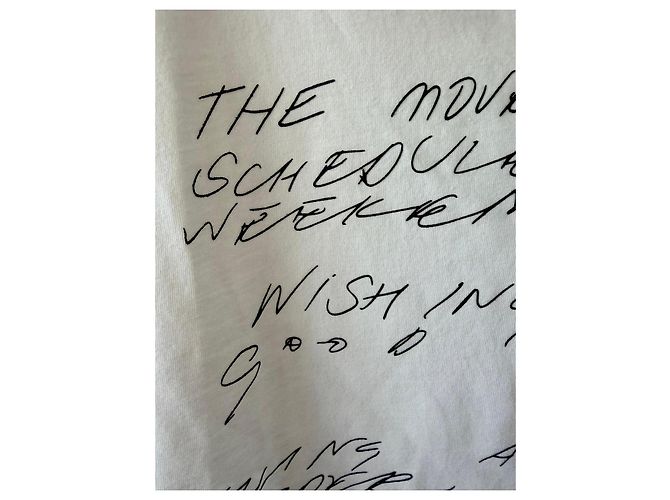 THE MOV
SCHEDUL
WEEKEN
WISHING
gOOD